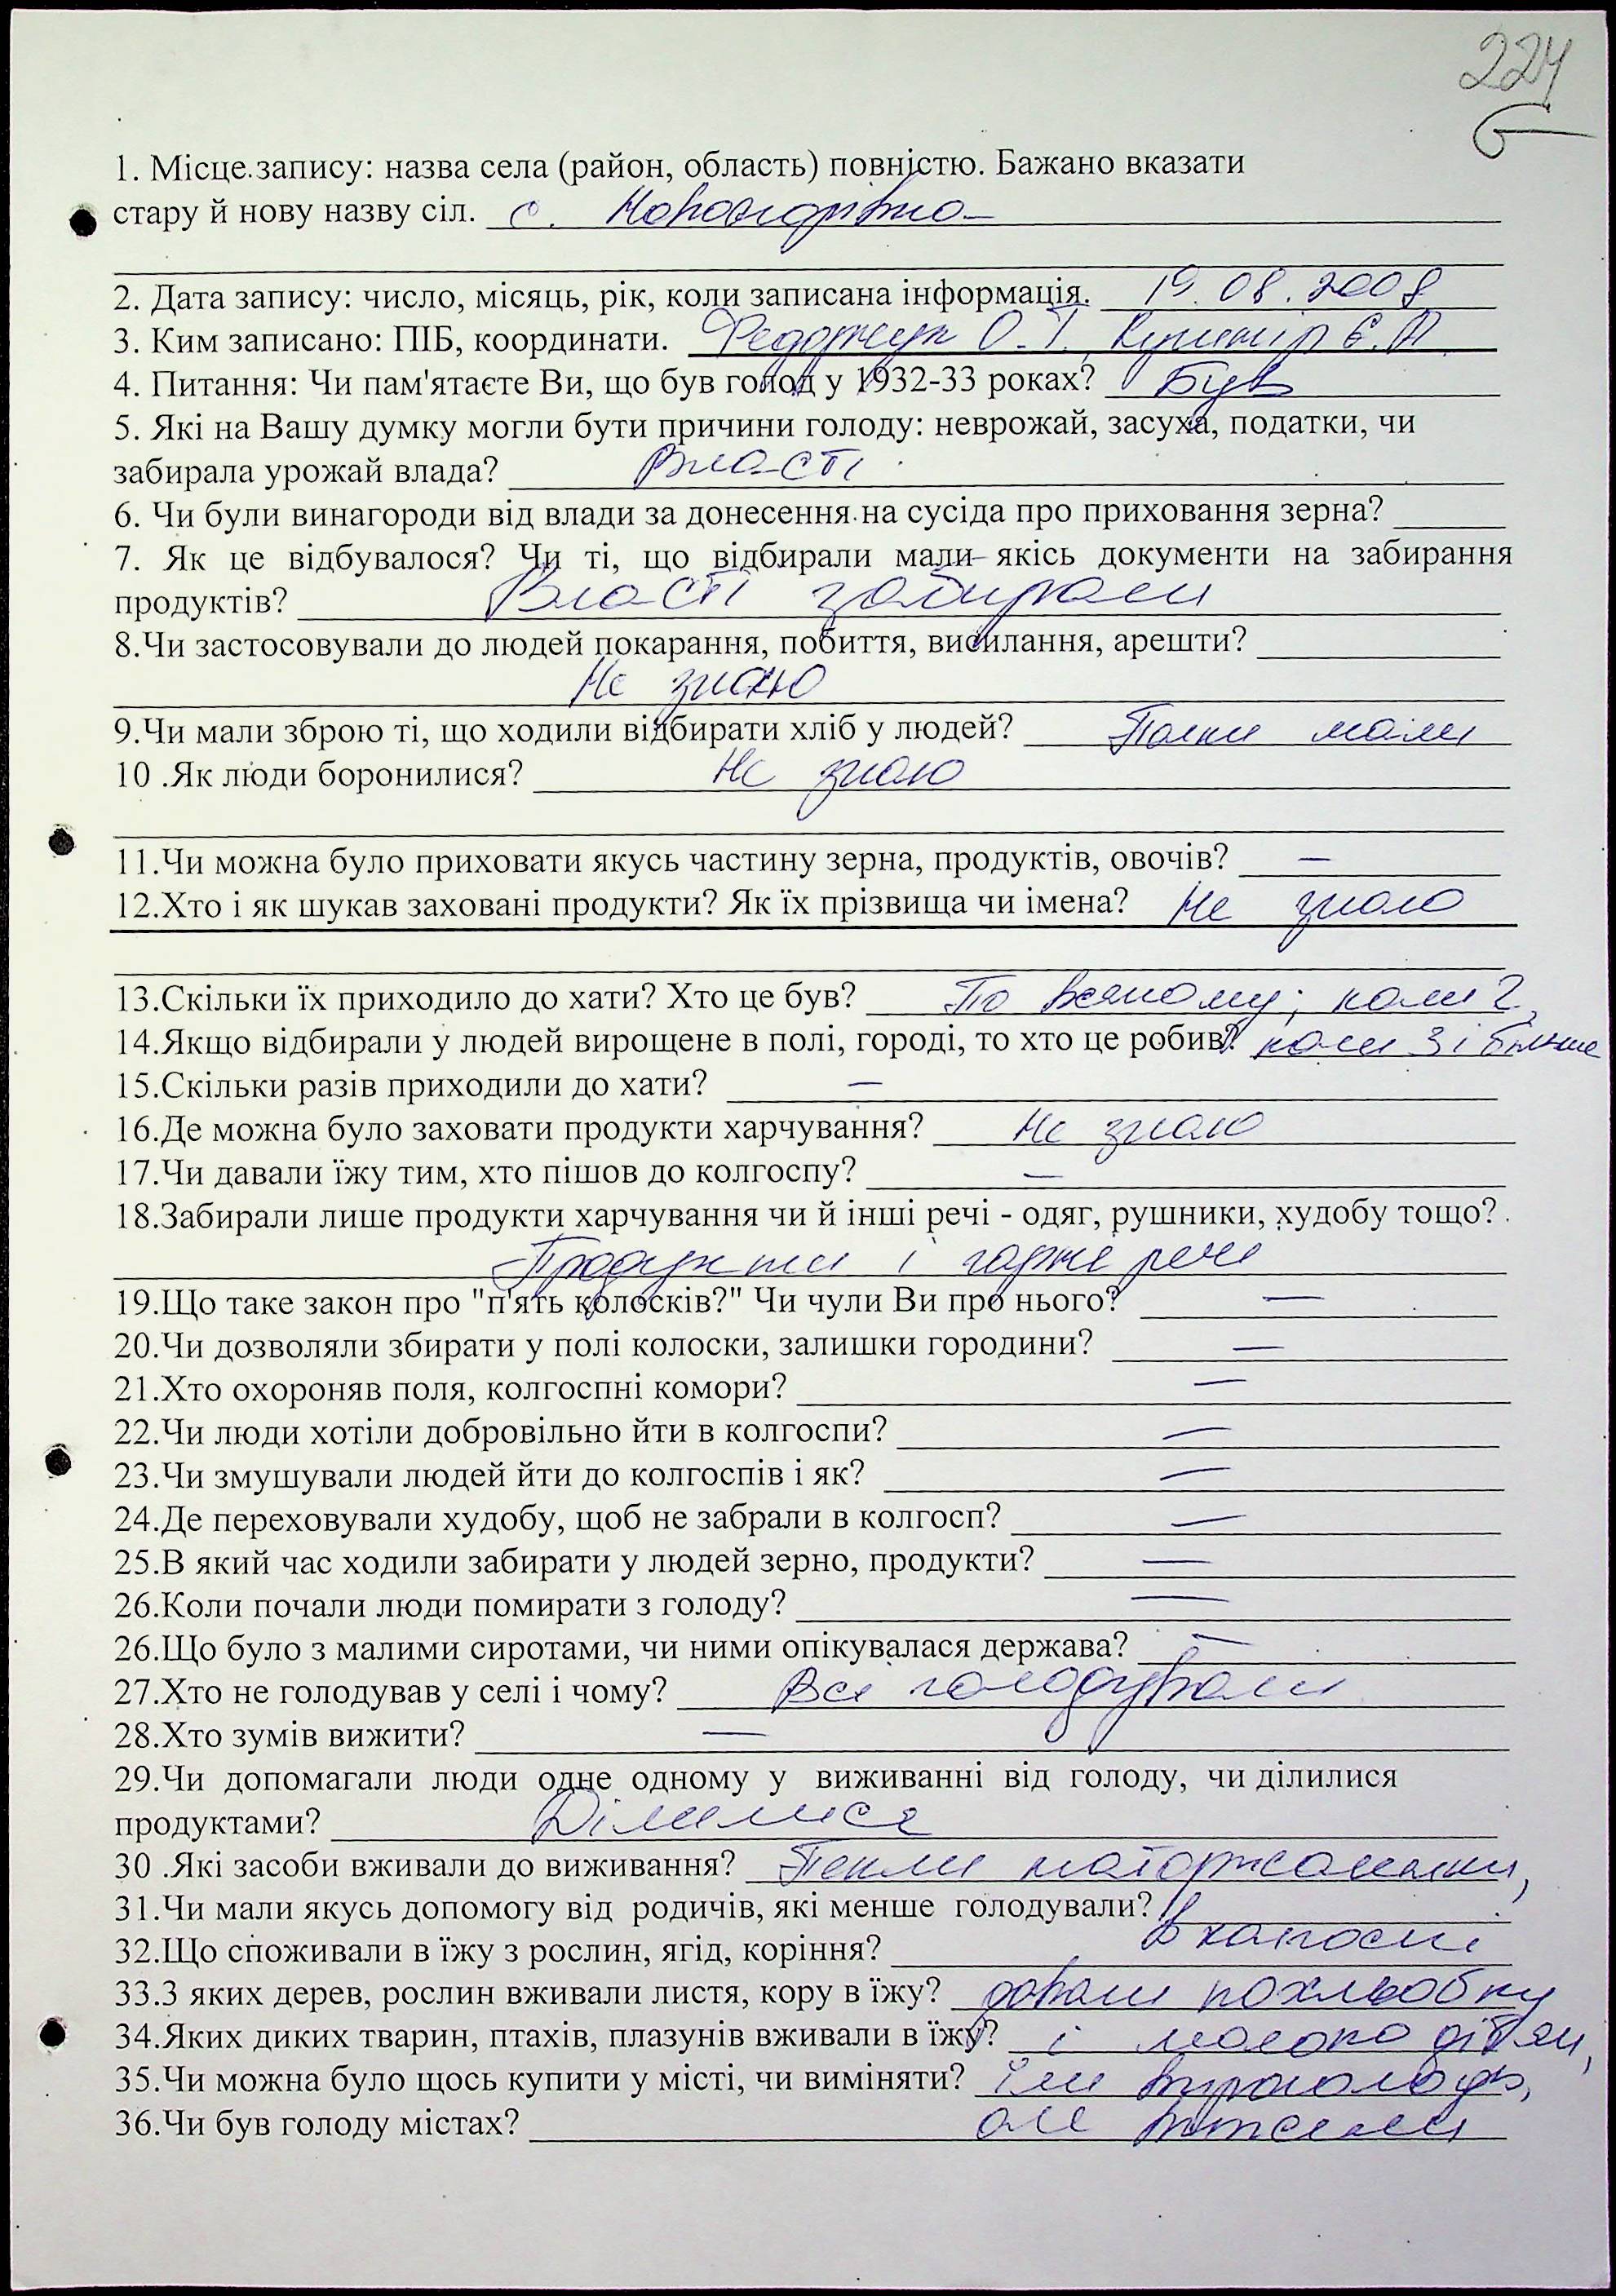 224
1. Місце запису: назва села (район, область) повністю. Бажано вказати
стару й нову назву сіл. с.
2. Дата запису: число, місяць, рік, коли записана інформація. 19.08.2008
3. Ким записано: ПІБ, координати. О.
4. Питання: Чи пам'ятаєте Ви, що був голод у 1932-33 роках? Був
5. Які на Вашу думку могли бути причини голоду: неврожай, засуха, податки, чи
забирала урожай влада? Власті
6. Чи були винагороди від влади за донесення на сусіда про приховання зерна?
7. Як це відбувалося? Чи ті, що відбирали мали якісь документи на забирання
продуктів? Власті забирали
8.Чи застосовували до людей покарання, побиття, висилання, арешти?
Не знаю
9.Чи мали зброю ті, що ходили відбирати хліб у людей? Палки мали
10 .Як люди боронилися? Не знаю
11.Чи можна було приховати якусь частину зерна, продуктів, овочів? –
12.Хто і як шукав заховані продукти? Як їх прізвища чи імена? Не знаю
13.Скільки їх приходило до хати? Хто це був? По всякому; коли 2,
14.Якщо відбирали у людей вирощене в полі, городі, то хто це робив? коли 3 і більше
15.Скільки разів приходили до хати? –
16.Де можна було заховати продукти харчування? Не знаю
17.Чи давали їжу тим, хто пішов до колгоспу? –
18.Забирали лише продукти харчування чи й інші речі - одяг, рушники, худобу тощо?
Продукти і гарні речі
19.Що таке закон про "п'ять колосків?" Чи чули Ви про нього? –
20.Чи дозволяли збирати у полі колоски, залишки городини? –
21.Хто охороняв поля, колгоспні комори? –
22.Чи люди хотіли добровільно йти в колгоспи? –
23.Чи змушували людей йти до колгоспів і як? –
24.Де переховували худобу, щоб не забрали в колгосп? –
25.В який час ходили забирати у людей зерно, продукти? –
26.Коли почали люди помирати з голоду? –
26.Що було з малими сиротами, чи ними опікувалася держава? –
27.Хто не голодував у селі і чому? Всі голодували
28.Хто зумів вижити? –
29.Чи допомагали люди одне одному у виживанні від голоду, чи ділилися
продуктами? Ділилися
30 .Які засоби вживали до виживання? Пекли маторжаники,
31.Чи мали якусь допомогу від родичів, які менше голодували?
32.Що споживали в їжу з рослин, ягід, коріння? в колгоспі
33.З яких дерев, рослин вживали листя, кору в їжу? давали похльобку
34.Яких диких тварин, птахів, плазунів вживали в їжу? і молоко дітям,
35.Чи можна було щось купити у місті, чи виміняти? їли впроголодь,
36.Чи був голоду містах? але вижили